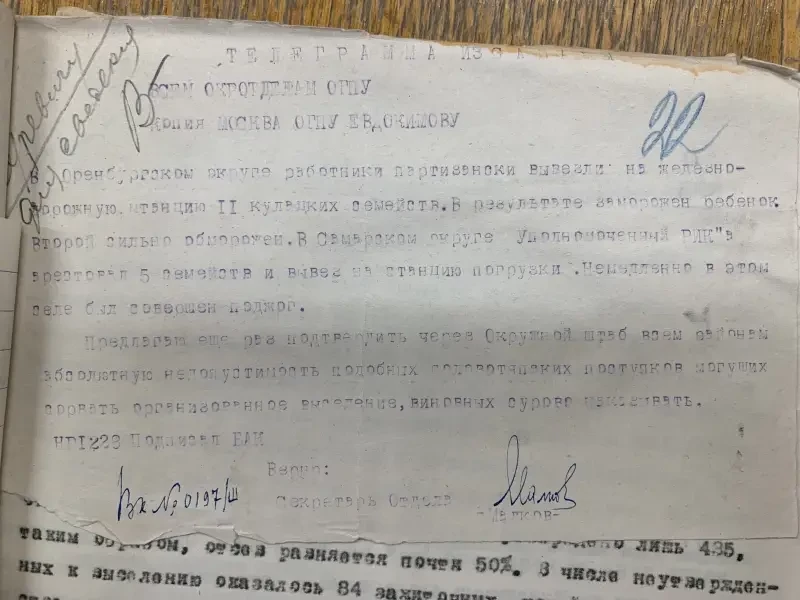 ТЕЛЕГРАММА ИЗ
ВСЕМ ОКРОТДЕЛАМ ОГПУ
Копия МОСКВА ОГПУ ЕВДОКИМОВУ
22
В Оренбургском округе работники партизански вывезли на железно-
дорожную станцию II кулацких семейств.В результате заморожен ребенок
второй сильно обморожен.В Самарском округе Уполномоченный РИК"а
арестовал 5 семейств и вывез на станцию погрузки .Немедленно в этом
селе был совершен поджог.
Предлагаю еще раз подтвердить через Окружной штаб всем районам
абсолютную недопустимость подобных головотяпских поступков могущих
сорвать организованное выселение,виновных сурово наказывать.
НР1223 Подписал БАК
Верно:
Вх № 0197/ш
Секретарь Отдела
-Малков-
лишь 435,
таким образом, отсев разняется почти 50%. В числе неутвержден-
ных к выселению оказалось 84 зажиточных